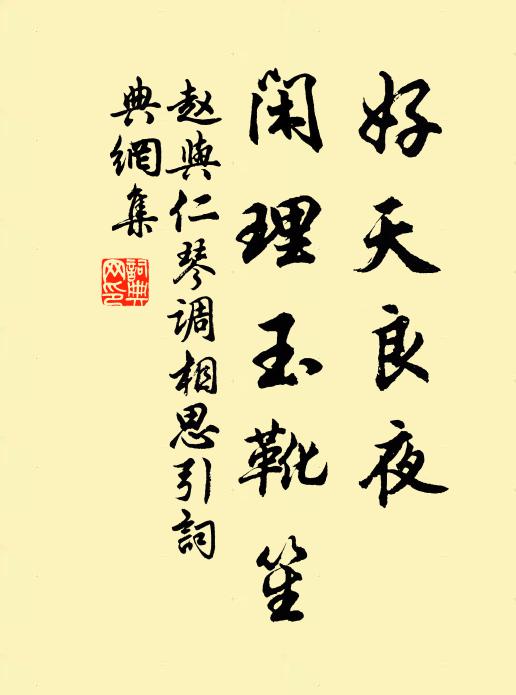 好天良夜
闲理玉靴笙
赵與仁琴调相思引詞
典網集
詞典网印